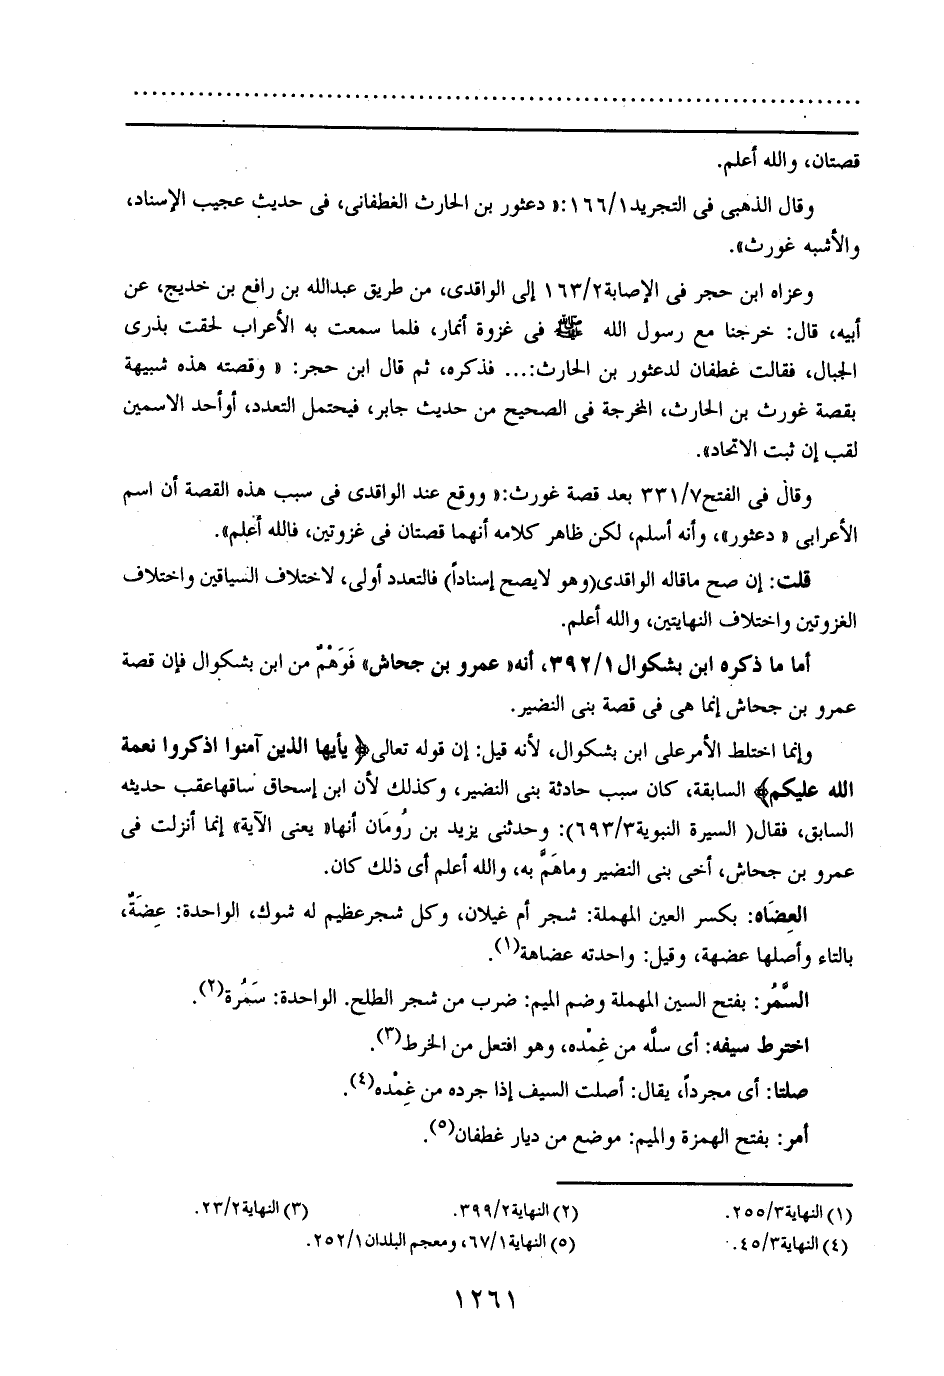 قصتان، والله أعلم.
وقال الذهبى فى التجريد١/١٦٦:« دعثور بن الحارث الغطفانى، فى حديث عجيب الإسناد،
والأشبه غورث».
وعزاه ابن حجر فى الإصابة٢/١٦٣ إلى الواقدى، من طريق عبدالله بن رافع بن خديج، عن
أبيه، قال: خرجنا مع رسول الله ﷺ فى غزوة أنمار، فلما سمعت به الأعراب لحقت بذرى
الجبال، فقالت غطفان لدعثور بن الحارث:... فذكره، ثم قال ابن حجر: « وقصته هذه شبيهة
بقصة غورث بن الحارث، المخرجة فى الصحيح من حديث جابر، فيحتمل التعدد، أوأحد الاسمين
لقب إن ثبت الاتحاد».
وقال فى الفتح٧/٣٣١ بعد قصة غورث:« ووقع عند الواقدى فى سبب هذه القصة أن اسم
الأعرابى « دعثور»، وأنه أسلم، لكن ظاهر كلامه أنهما قصتان فى غزوتين، فالله أعلم».
قلت: إن صح ماقاله الواقدى(وهو لايصح إسناداً) فالتعدد أولى، لاختلاف السياقين واختلاف
الغزوتين واختلاف النهايتين، والله أعلم.
أما ما ذكره ابن بشكوال١/٣٩٢، أنه« عمرو بن جحاش» فَوَهْمٌ من ابن بشكوال فإن قصة
عمرو بن جحاش إنما هى فى قصة بنى النضير.
وإنما اختلط الأمرعلى ابن بشكوال، لأنه قيل: إن قوله تعالى﴿ يأيها الذين آمنوا اذكروا نعمة
الله عليكم﴾ السابقة، كان سبب حادثة بنى النضير، وكذلك لأن ابن إسحاق ساقهاعقب حديثه
السابق، فقال( السيرة النبوية٣/٦٩٣): وحدثنى يزيد بن رُومَان أنها« يعنى الآية» إنما أنزلت فى
عمرو بن جحاش، أخى بنى النضير وماهَمَّ به، والله أعلم أى ذلك كان.
العِضَاه: بكسر العين المهملة: شجر أم غيلان، وكل شجرعظيم له شوك، الواحدة: عِضَةٌ،
بالتاء وأصلها عضهة، وقيل: واحدته عضاهة(١).
السَّمُر: بفتح السين المهملة وضم الميم: ضرب من شجر الطلح. الواحدة: سَمُرة(٢).
اخترط سيفه: أى سلَّه من غِمْده، وهو افتعل من الخرط(٣).
صلتا: أى مجرداً، يقال: أصلت السيف إذا جرده من غِمْده(٤).
أمر: بفتح الهمزة والميم: موضع من ديار غطفان(٥).
(١) النهاية٣/٢٥٥. (٢) النهاية٢/٣٩٩. (٣) النهاية٢/٢٣.
(٤) النهاية٣/٤٥. (٥) النهاية١/٦٧، ومعجم البلدان١/٢٥٢.
١٢٦١